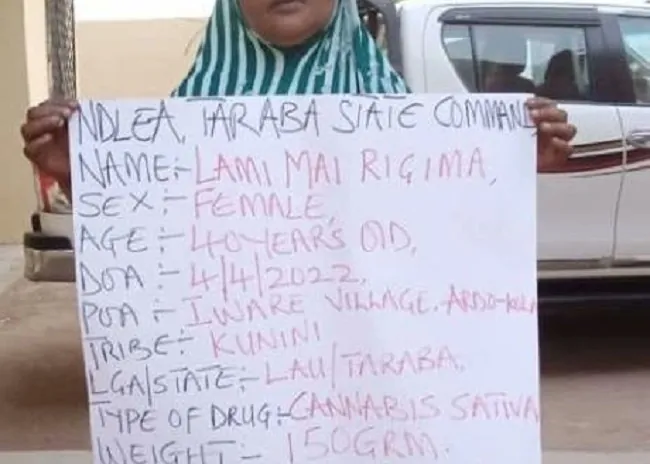 NDLEA, TARABA STATE COMMAND
NAME:- LAMI MAI RIGIMA,
SEX:- FEMALE,
AGE:- 40 YEARS OLD,
DOA:- 4/4/2022,
POA:- IWARE VILLAGE. ARDO-KOLA
TRIBE:- KUNINI
LGA/STATE:- LAU/TARABA.
TYPE OF DRUG:- CANNABIS SATIVA
WEIGHT:- 150GRM.